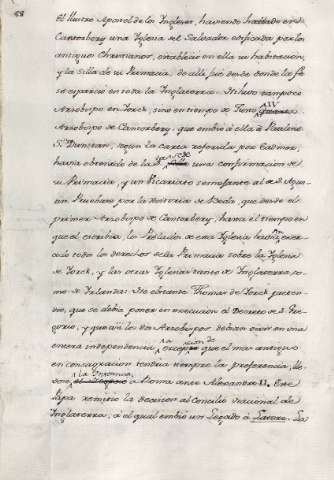 88
El Ilustre Apostol de los Ingleses, haviendo hallado en
Cantorbery una Yglesia del Salvador edificada por los
antiguos Christianos, establecio en ella su habitacion,
y la silla de su Primacia, de alli fue desde donde la fè
se esparció en toda la Inglaterra. No huvo tampoco
Arzobispo en Yorck, sino en tiempo de
Arzobispo de Cantorbery, que embió à ella à Paulino
Sn. Dunstan, segun la carta referida por Eadmero,
havia obtenido de la Sta. Sede una confirmacion de
su Primacia, y un Vicariato semejante al de S. Agus-
tin. Pruebase por la historia de Beda, que desde el
primer Arzobispo de Cantorbery, hasta el tiempo en
que el escribia, los Prelados de esta Yglesia havian exer-
cido todos los derechos de la Primacia sobre la Yglesia
de Yorck, y las otras Yglesias tanto de Ynglaterra, co-
mo de Yrlanda. No obstante Thomas de Yorck preten-
dio, que se debia poner en execucion el Decreto de S. Gre-
gorio, y que asi los dos Arzobispos debian vivir en una
entera independencia, que el mas antiguo
en consagracion tendria siempre la preferencia; lle-
vose la à Roma ante Alexandro II. Este
Papa remitió la decision al Concilio nacional de
Ynglaterra; à el qual embió un Legado à La